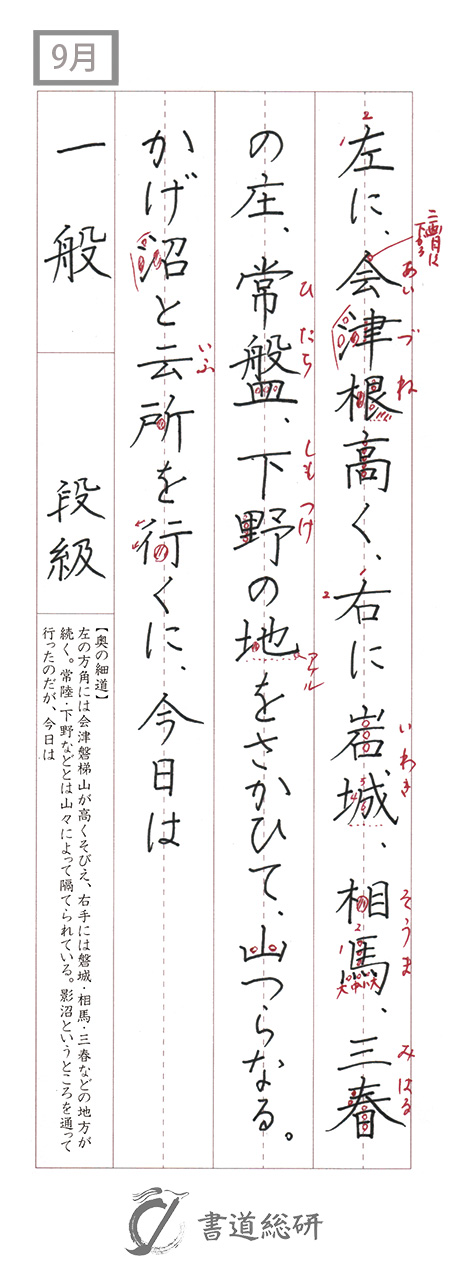 9月
左に、会津根高く、右に岩城、相馬、三春
二画目に
下から
あいづね
いわき
そうま
みはる
の庄、常盤、下野の地をさかひて、山つらなる。
ひたち
しもつけ
アケル
大中小大
かげ沼と云所を行くに、今日は
いふ
一般
段級
【奥の細道】
左の方角には会津磐梯山が高くそびえ、右手には磐城・相馬・三春などの地方が
続く。常陸・下野などとは山々によって隔てられている。影沼というところを通って
行ったのだが、今日は
書道総研